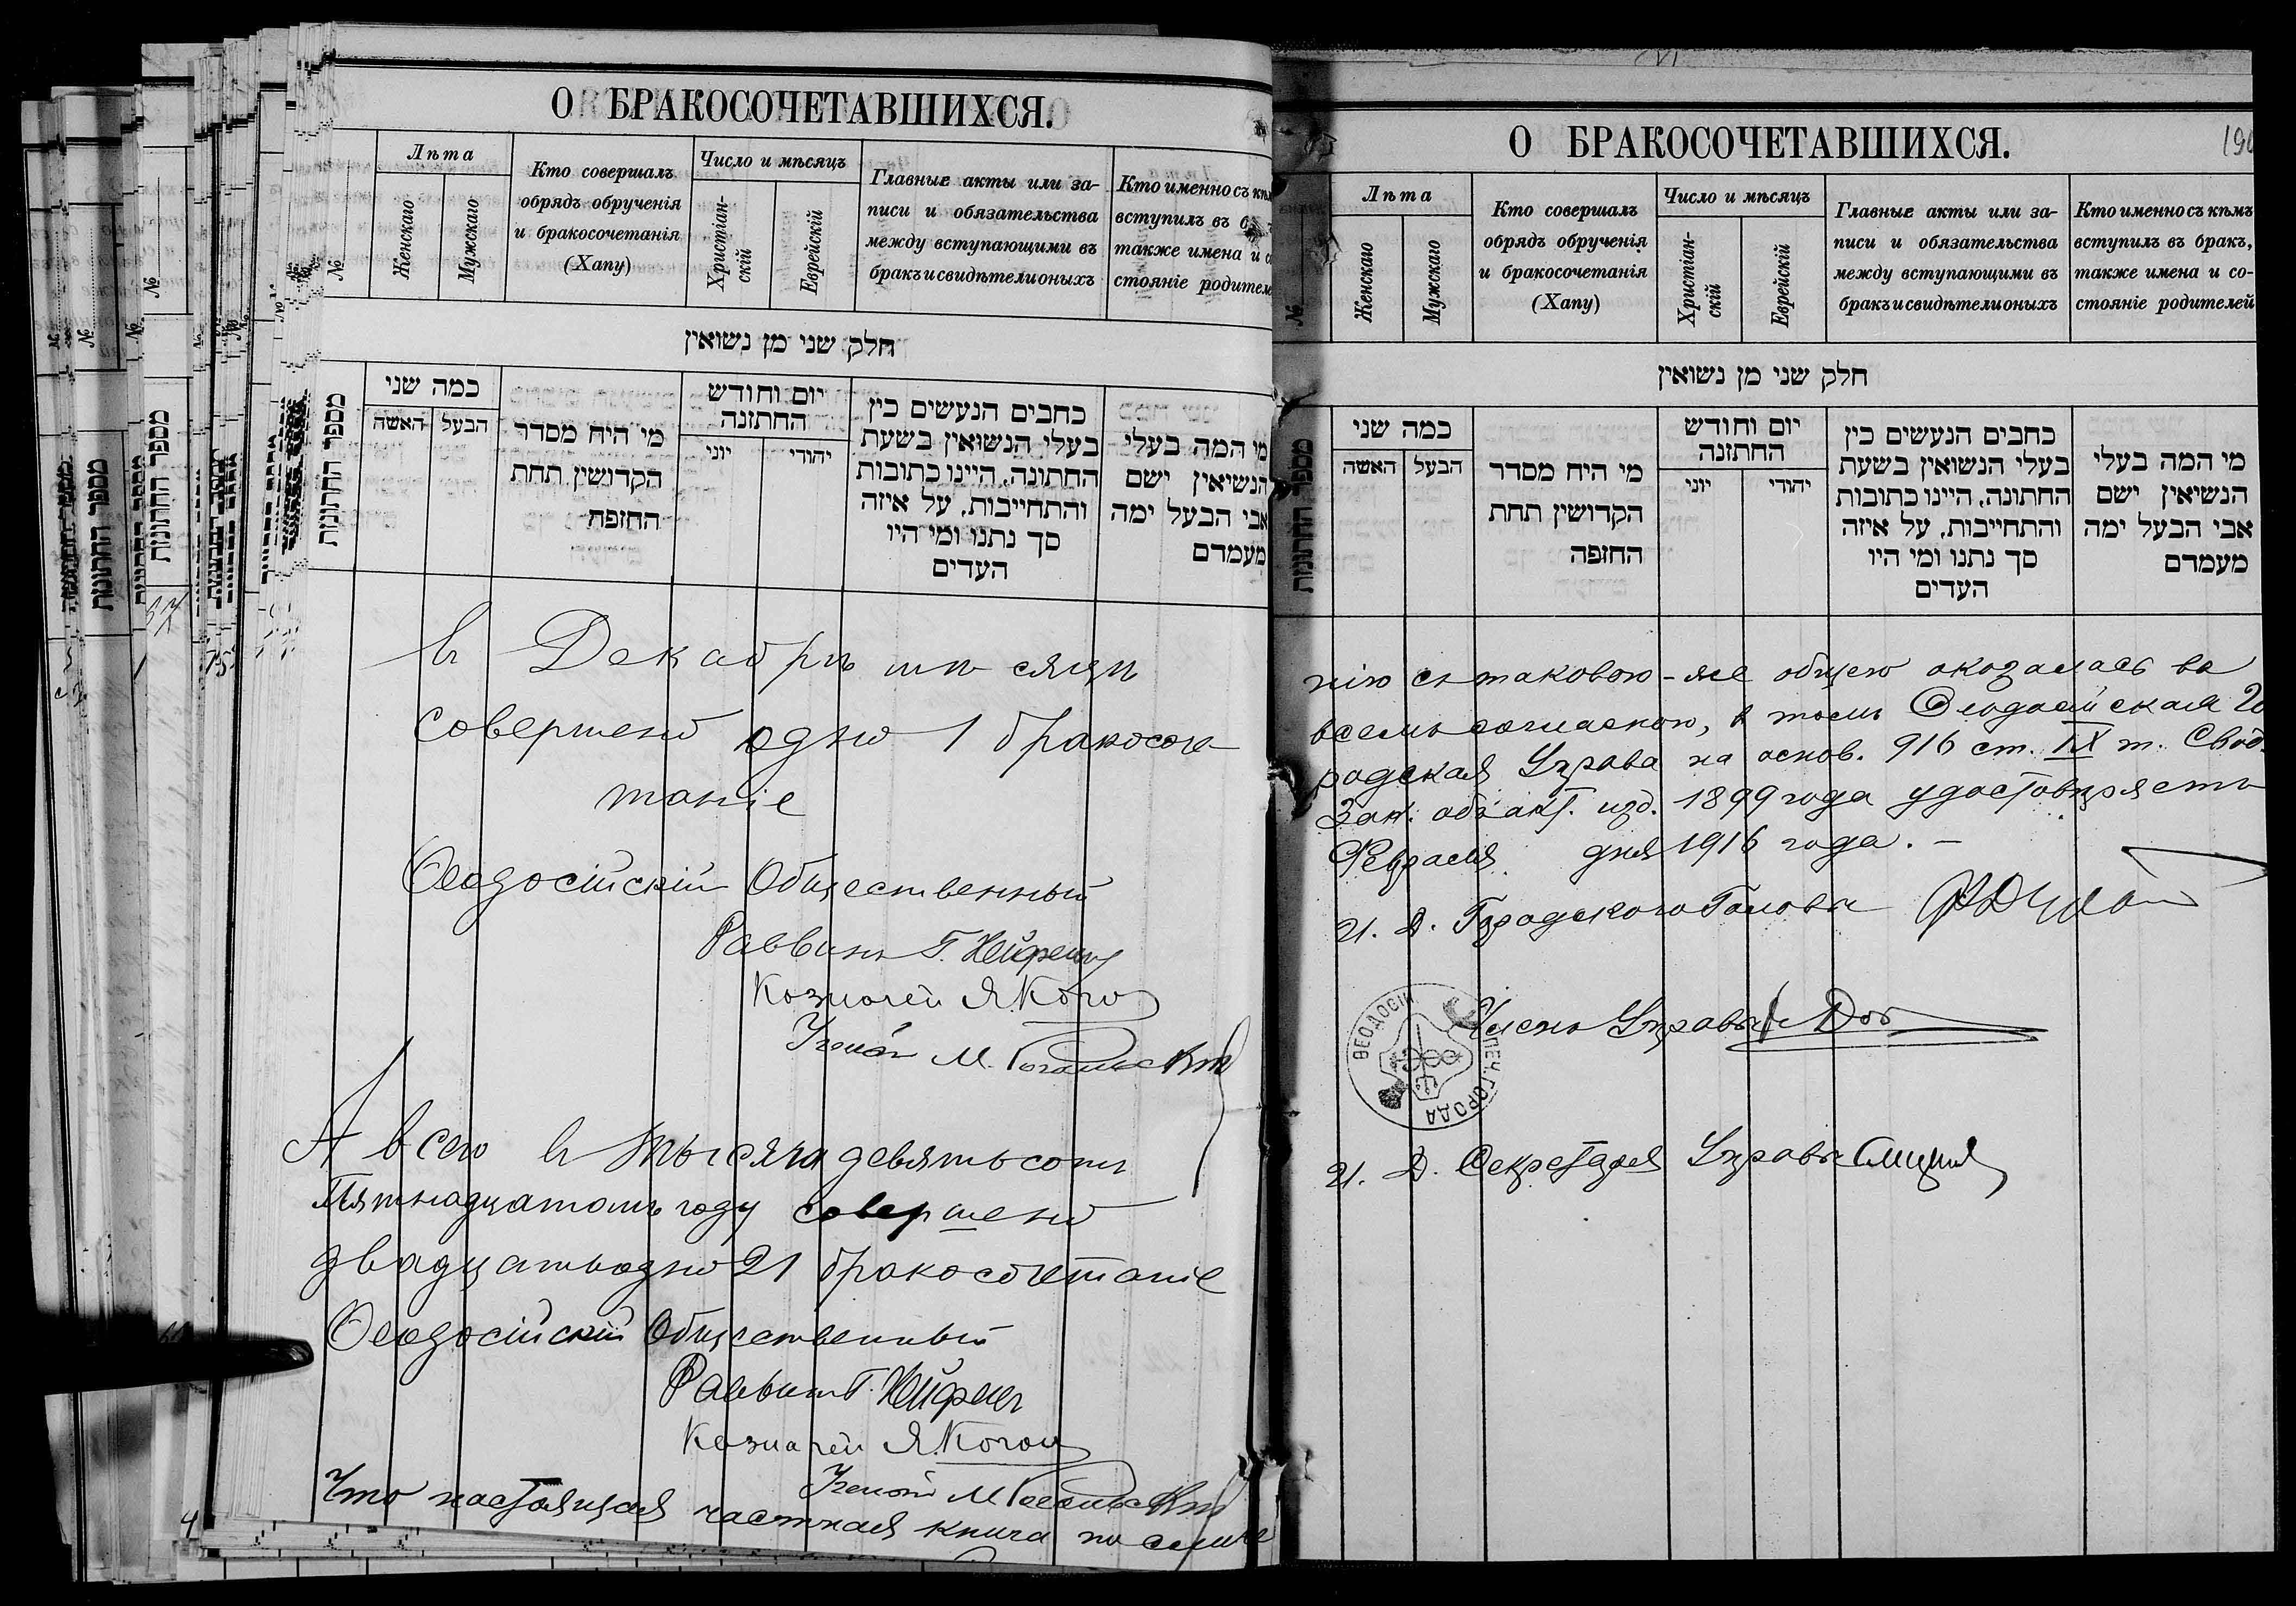 О БРАКОСОЧЕТАВШИХСЯ.
№
Лѣта
Женскаго
Мужскаго
Кто совершалъ
обрядъ обрученія
и бракосочетанія
(Хапу)
Число и мѣсяцъ
Христіан-
скій
Еврейскій
Главные акты или за-
писи и обязательства
между вступающими въ
бракъ и свидѣтели оныхъ
Кто именно съ кѣм
вступилъ въ б
также имена и с
стояніе родителе
חלק שני מן נשואין
מספר החתונות
כמה שני
האשה
הבעל
מי היה מסדר
הקדושין תחת
החופה
יום וחודש
החתונה
יוני
יהודי
כתבים הנעשים בין
בעלי הנשואין בשעת
החתונה, היינו כתובות
והתחייבות, על איזה
סך נתנו ומי היו
העדים
מי המה בעלי
הנשיאין ישם
אבי הבעל ימה
מעמדם
въ Декабрѣ мѣсяцѣ
совершено одно 1 бракосоче
таніе
Ѳеодосійскій Общественный
Раввинъ Г.
Казначей Я. Коган
Ученый М.
А всего въ тысяча девятьсотъ
пятнадцатомъ году совершено
двадцать одно 21 бракосочетаніе
Ѳеодосійскій Общественный
Раввинъ Г.
Казначей Я. Коган
Ученый М.
Что настоящая частная книга по сличе
О БРАКОСОЧЕТАВШИХСЯ.
190
№
Лѣта
Женскаго
Мужскаго
Кто совершалъ
обрядъ обрученія
и бракосочетанія
(Хапу)
Число и мѣсяцъ
Христіан-
скій
Еврейскій
Главные акты или за-
писи и обязательства
между вступающими въ
бракъ и свидѣтели оныхъ
Кто именно съ кѣмъ
вступилъ въ бракъ,
также имена и со-
стояніе родителей
חלק שני מן נשואין
מספר החתונות
כמה שני
האשה
הבעל
מי היה מסדר
הקדושין תחת
החופה
יום וחודש
החתונה
יוני
יהודי
כתבים הנעשים בין
בעלי הנשואין בשעת
החתונה, היינו כתובות
והתחייבות, על איזה
סך נתנו ומי היו
העדים
מי המה בעלי
הנשיאין ישם
אבי הבעל ימה
מעמדם
нію съ таковою-же общею оказалась во
всемъ согласною, въ томъ Ѳеодосійская Го
родская Управа на основ. 916 ст. IX т. Свод.
Зак. объ акт. изд. 1899 года удостовѣряетъ
Февраля дня 1916 года. —
И. Д. Городского Головы
Членъ Управы
ПЕЧ. ГОРОДА ѲЕОДОСІИ
И. Д. Секретаря Управы